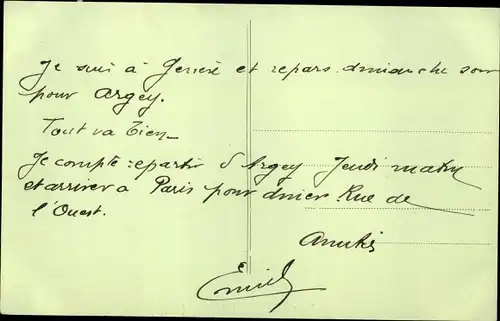 Je suis à Genève et repars dimanche soir
pour Argey.
Tout va bien_
Je compte repartir d'Argey Jeudi matin
et arriver à Paris pour dîner Rue de
l'Ouest.
Amitiés
Emile